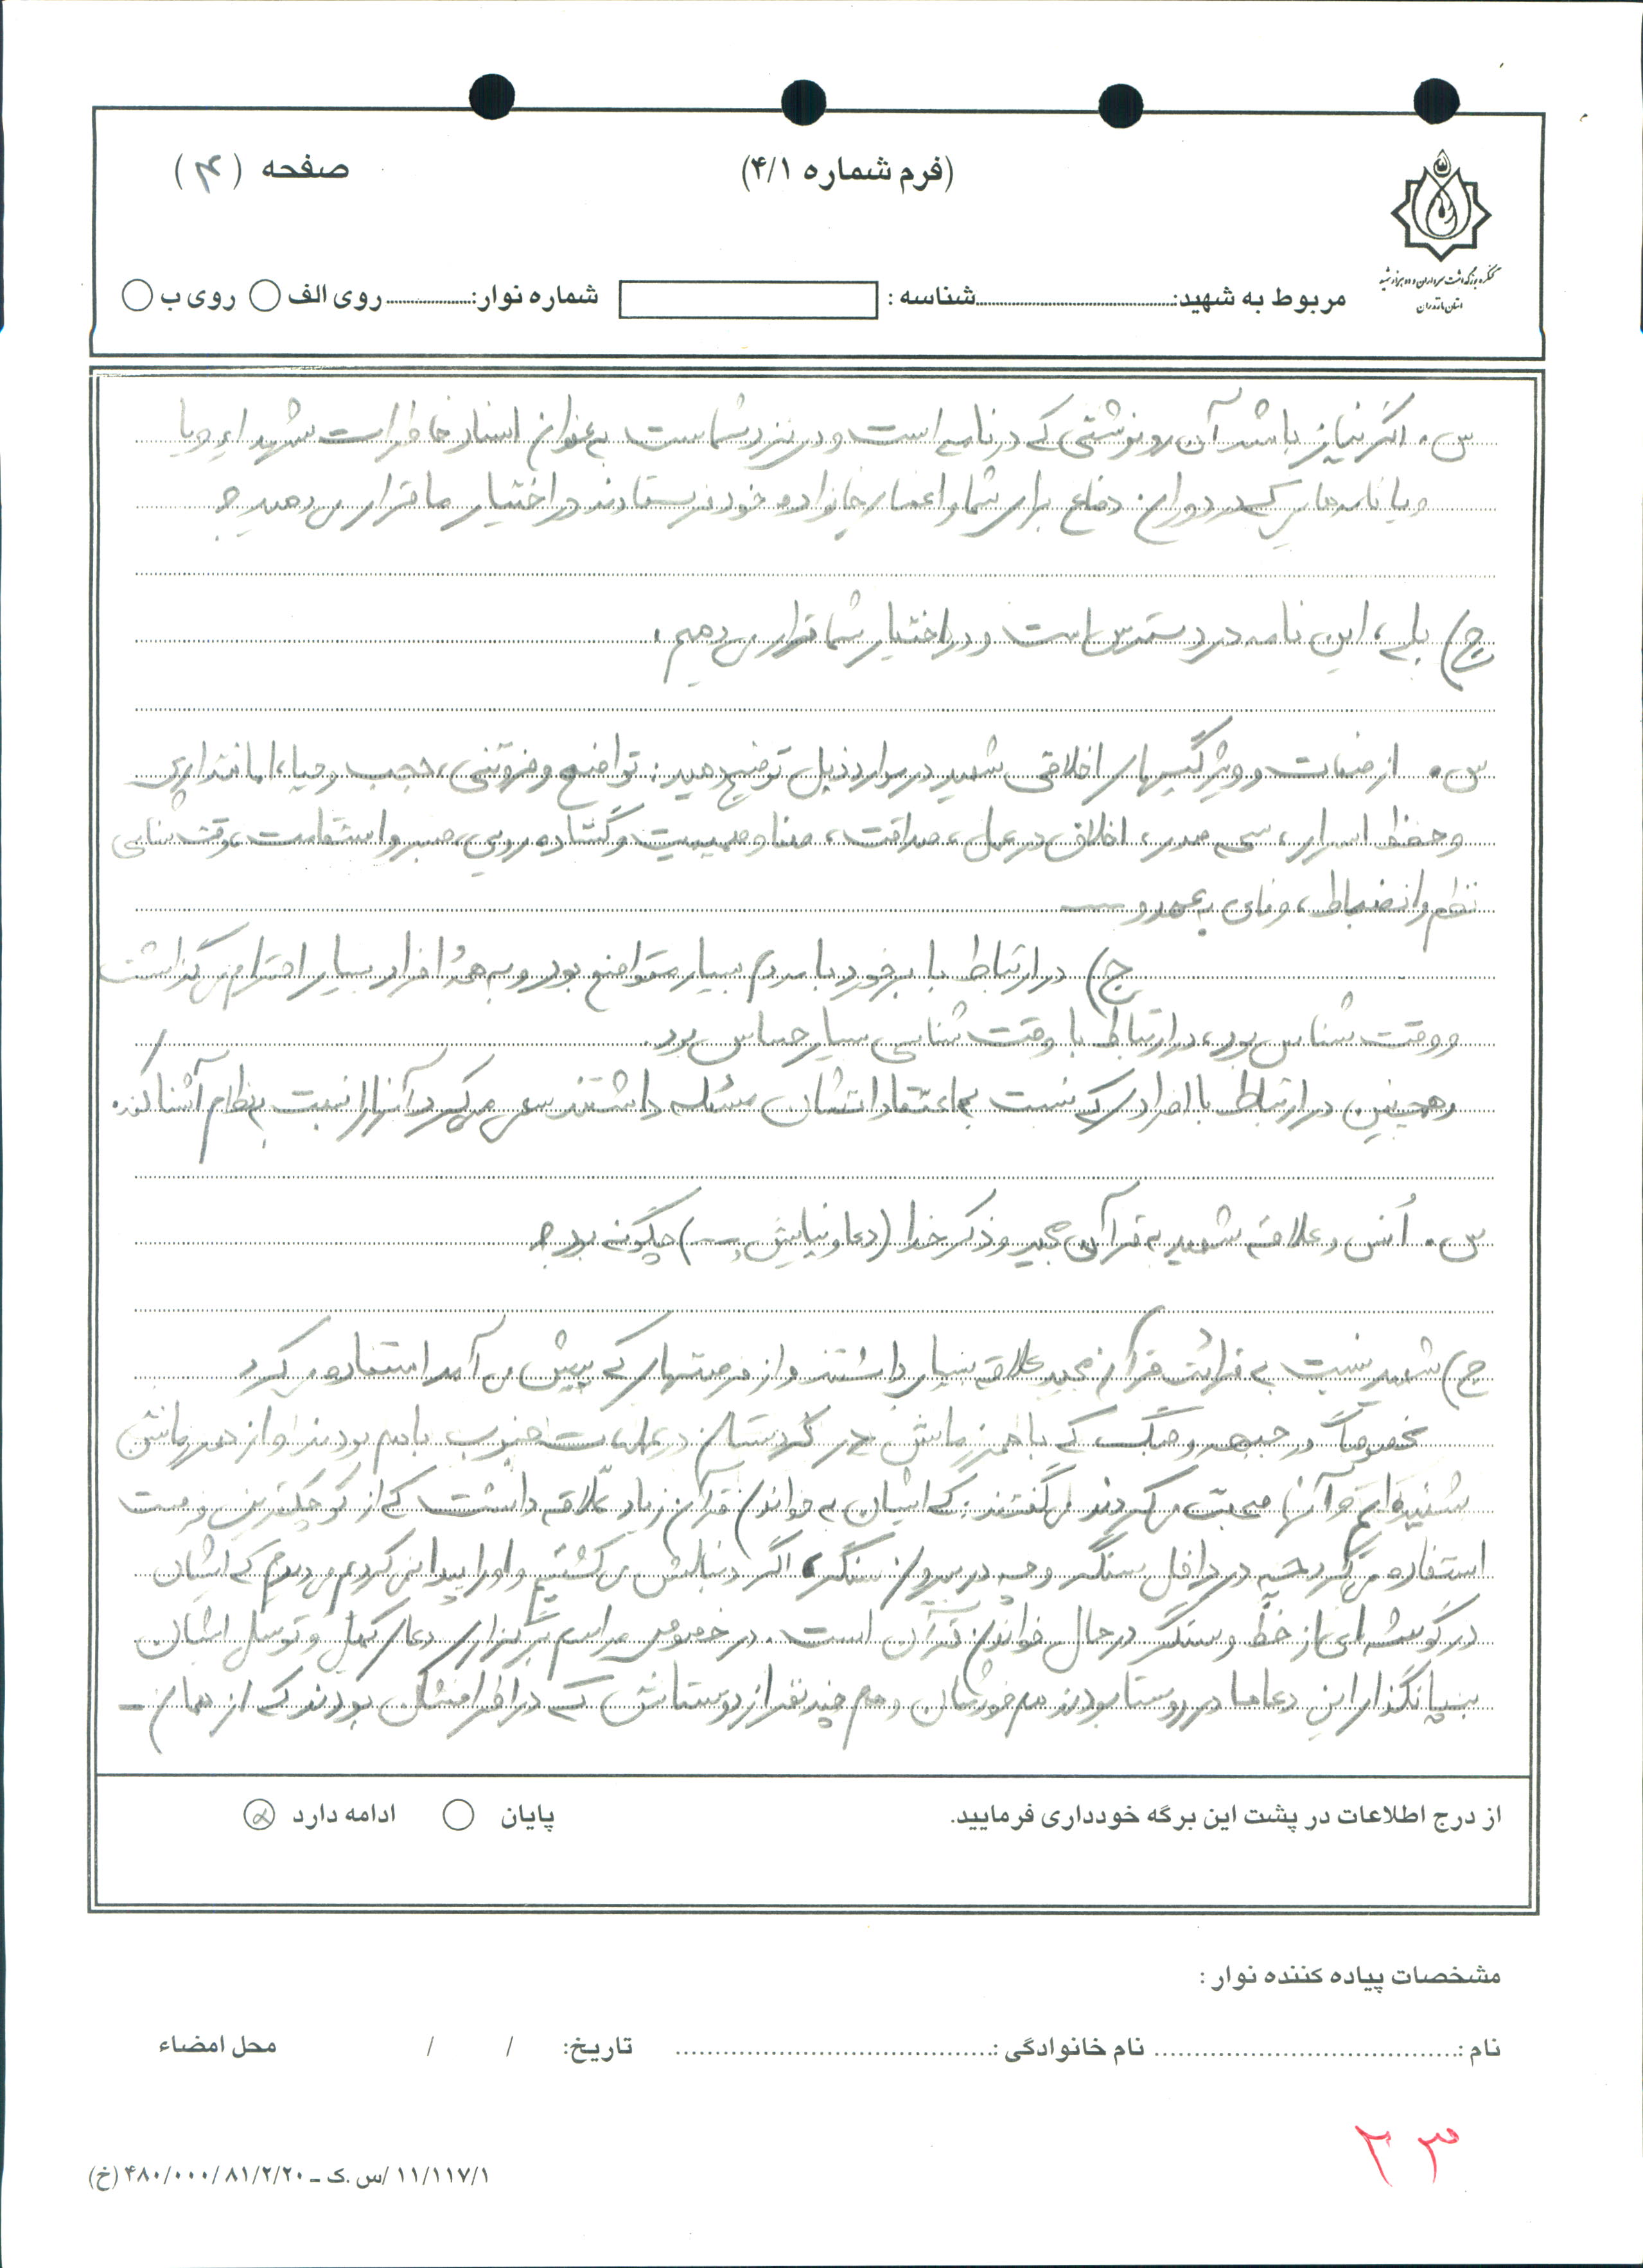 (فرم شماره ۴/۱)
صفحه (۴)
کنگره بزرگداشت سرداران و ده هزار شهید
استان مازندران
مربوط به شهید: شناسه : شماره نوار: روی الف روی ب
س. اگر نیاز باشد آن رونوشتی که در نامه است و در نزد شماست به عنوان اسناد خاطرات شهید
و یا نامه هایی که در دوران دفاع برای شما و اعضای خانواده خود فرستادند در اختیار ما قرار می دهید؟
ج) بله، این نامه در دسترس است و در اختیار شما قرار می دهیم.
س. از صفات و ویژگیهای اخلاقی شهید در موارد ذیل توضیح دهید: تواضع و فروتنی، حجب و حیا، امانتداری
و حفظ اسرار، سعه صدر، اخلاق در عمل، صداقت، صفا و صمیمیت و گشاده رویی، صبر و استقامت، وقت شناسی
نظم و انضباط، وفای بعهد و ...
ج) در ارتباط با برخورد با مردم بسیار متواضع بود و به همهٔ افراد بسیار احترام می گذاشت
و وقت شناس بود، در ارتباط با وقت شناسی بسیار حساس بود.
و همچنین در ارتباط با افرادی که نسبت به اعتقاداتشان مسئله داشتند سعی می کرد آنها را نسبت به نظام آشنا کند.
س. اُنس و علاقه شهید به قرآن مجید و ذکر خدا (دعا و نیایش و ...) چگونه بود؟
ج) شهید نسبت به قرائت قرآن مجید علاقه بسیار داشتند و از فرصتهای که پیش می آمد استفاده می کرد
مخصوصاً در جبهه و جنگ که با همرزمانش در کردستان در عملیات جنوب باهم بودند و از همرزمانش
شنیده ایم و آنها صحبت می کردند می گفتند: که ایشان به خواندن قرآن زیاد علاقه داشت که از کوچکترین فرصت
استفاده می کرد چه در داخل سنگر و چه در بیرون از سنگر، اگر دنبالش می گشتیم و او را پیدا نمی کردیم می دیدیم که ایشان
در گوشه ای از خط و سنگر در حال خواندن قرآن است. در خصوص مراسم برگزاری دعای کمیل و توسل ایشان
بنیانگذار این دعاها در روستا بودند هم خودشان و هم چند نفر از دوستانش که در اطرافشان بودند که از همان ـ
از درج اطلاعات در پشت این برگه خودداری فرمایید.
پایان ادامه دارد
مشخصات پیاده کننده نوار :
نام : نام خانوادگی : تاریخ: / / محل امضاء
۲۳
۱۱/۱۱۷/۱ /س .ک ـ ۴۸۰/۰۰۰/۸۱/۲/۲۰ (خ)